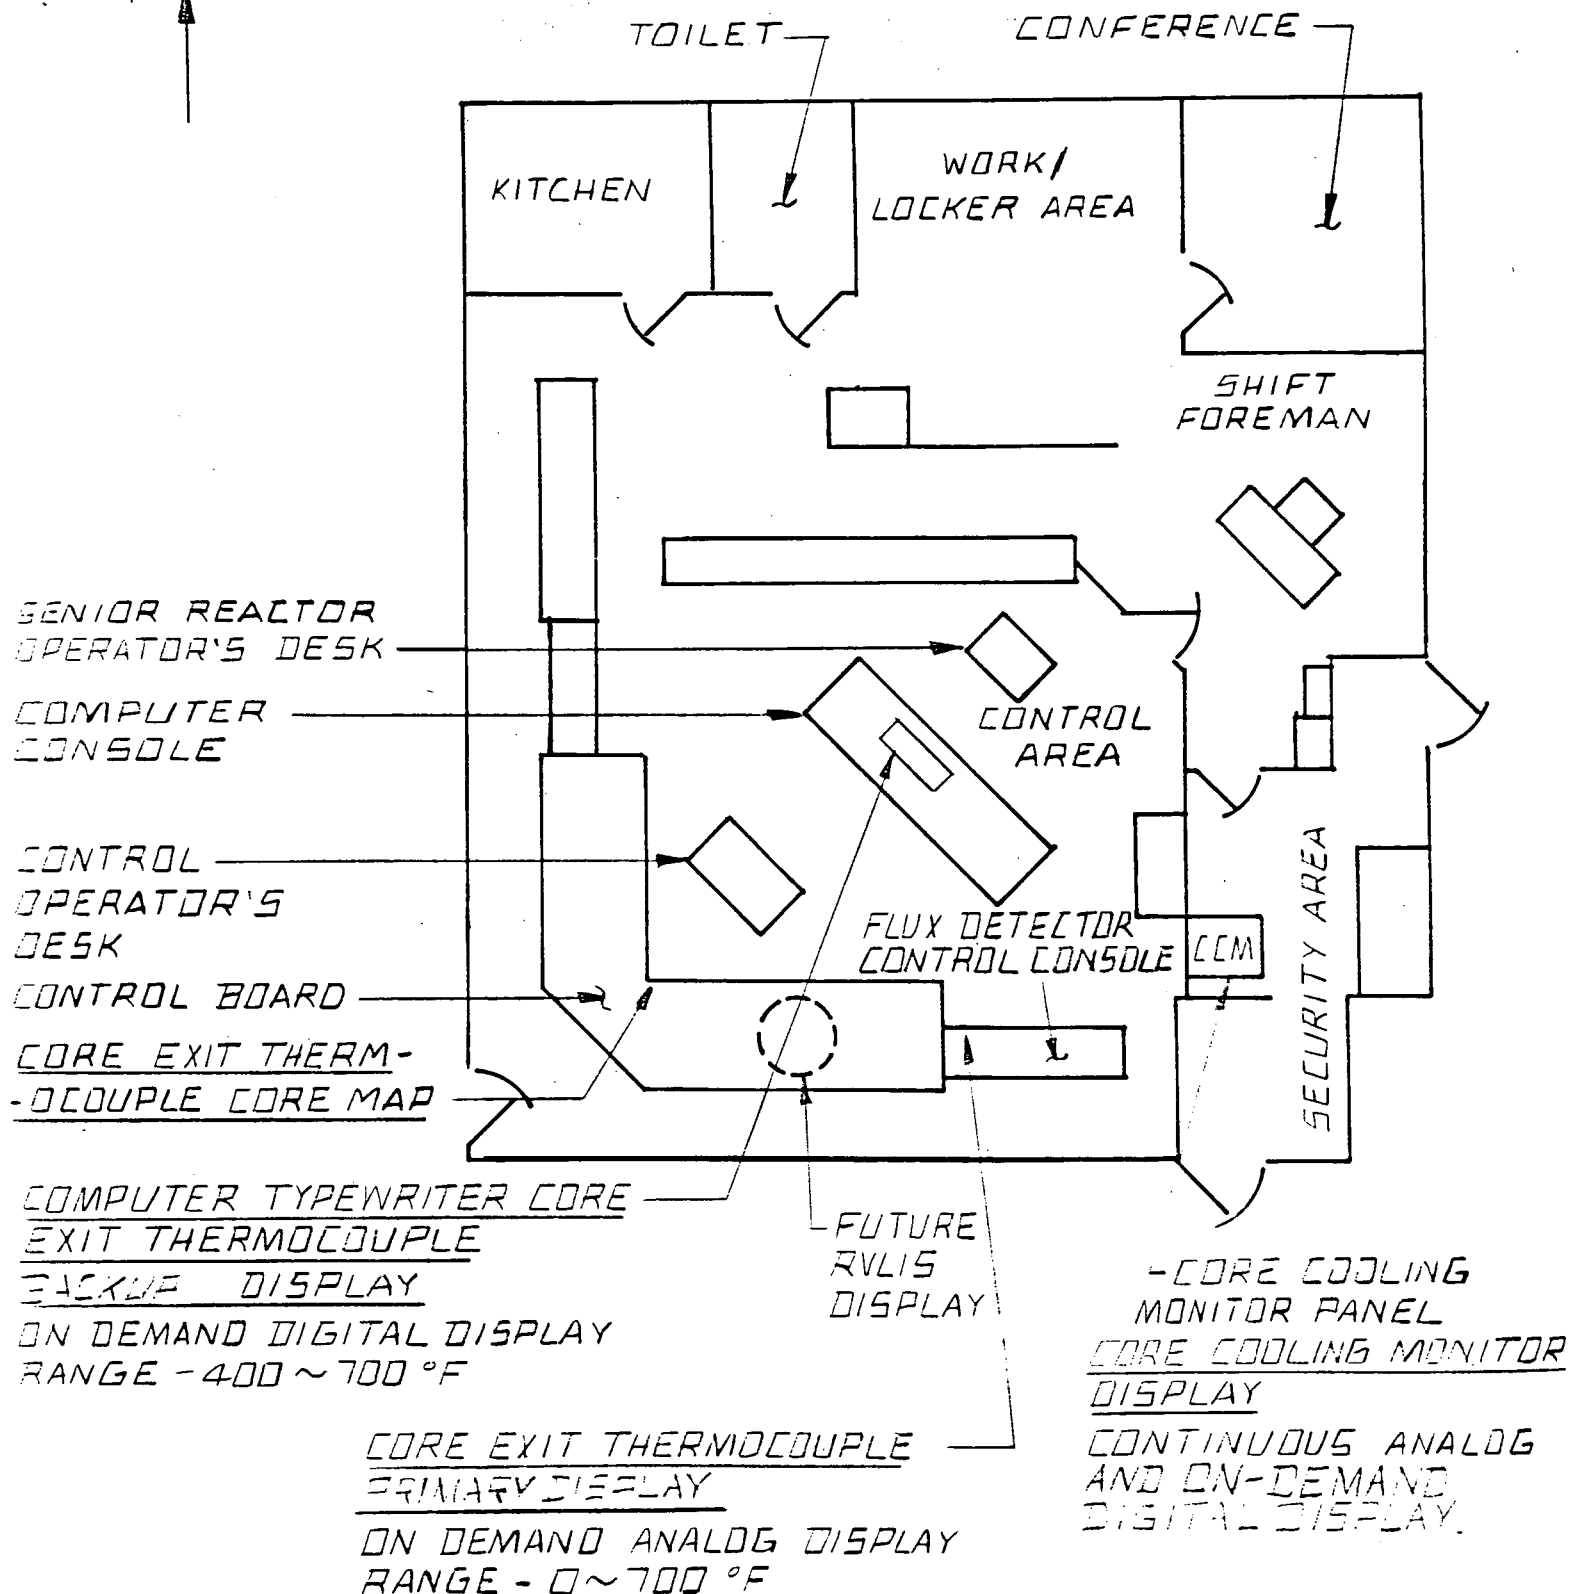 TOILET
CONFERENCE
KITCHEN
WORK/
LOCKER AREA
SHIFT
FOREMAN
SENIOR REACTOR
OPERATOR'S DESK
COMPUTER
CONSOLE
CONTROL
AREA
CONTROL
OPERATOR'S
DESK
FLUX DETECTOR
CONTROL CONSOLE
CCM
SECURITY AREA
CONTROL BOARD
CORE EXIT THERM-
-OCOUPLE CORE MAP
COMPUTER TYPEWRITER CORE
EXIT THERMOCOUPLE
BACKUP DISPLAY
ON DEMAND DIGITAL DISPLAY
RANGE - 400 ~ 700 °F
FUTURE
RVLIS
DISPLAY
-CORE COOLING
MONITOR PANEL
CORE COOLING MONITOR
DISPLAY
CONTINUOUS ANALOG
AND ON-DEMAND
DIGITAL DISPLAY.
CORE EXIT THERMOCOUPLE
PRIMARY DISPLAY
ON DEMAND ANALOG DISPLAY
RANGE - 0 ~ 700 °F